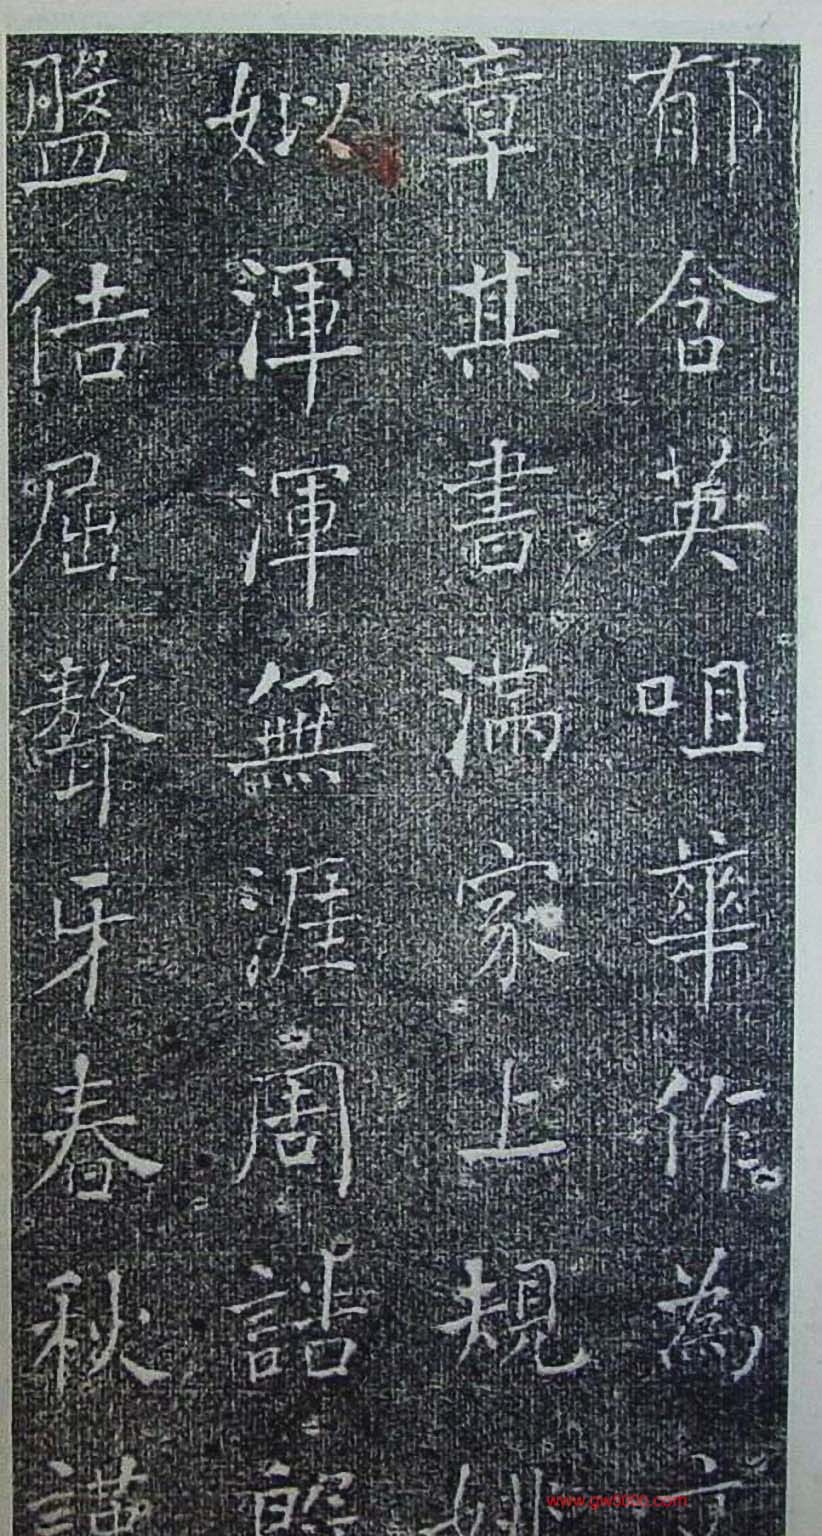 郁含英咀華作為文
章其書滿家上規姚
姒渾渾無涯周誥殷
盤佶屈聱牙春秋謹
www.gw5000.com